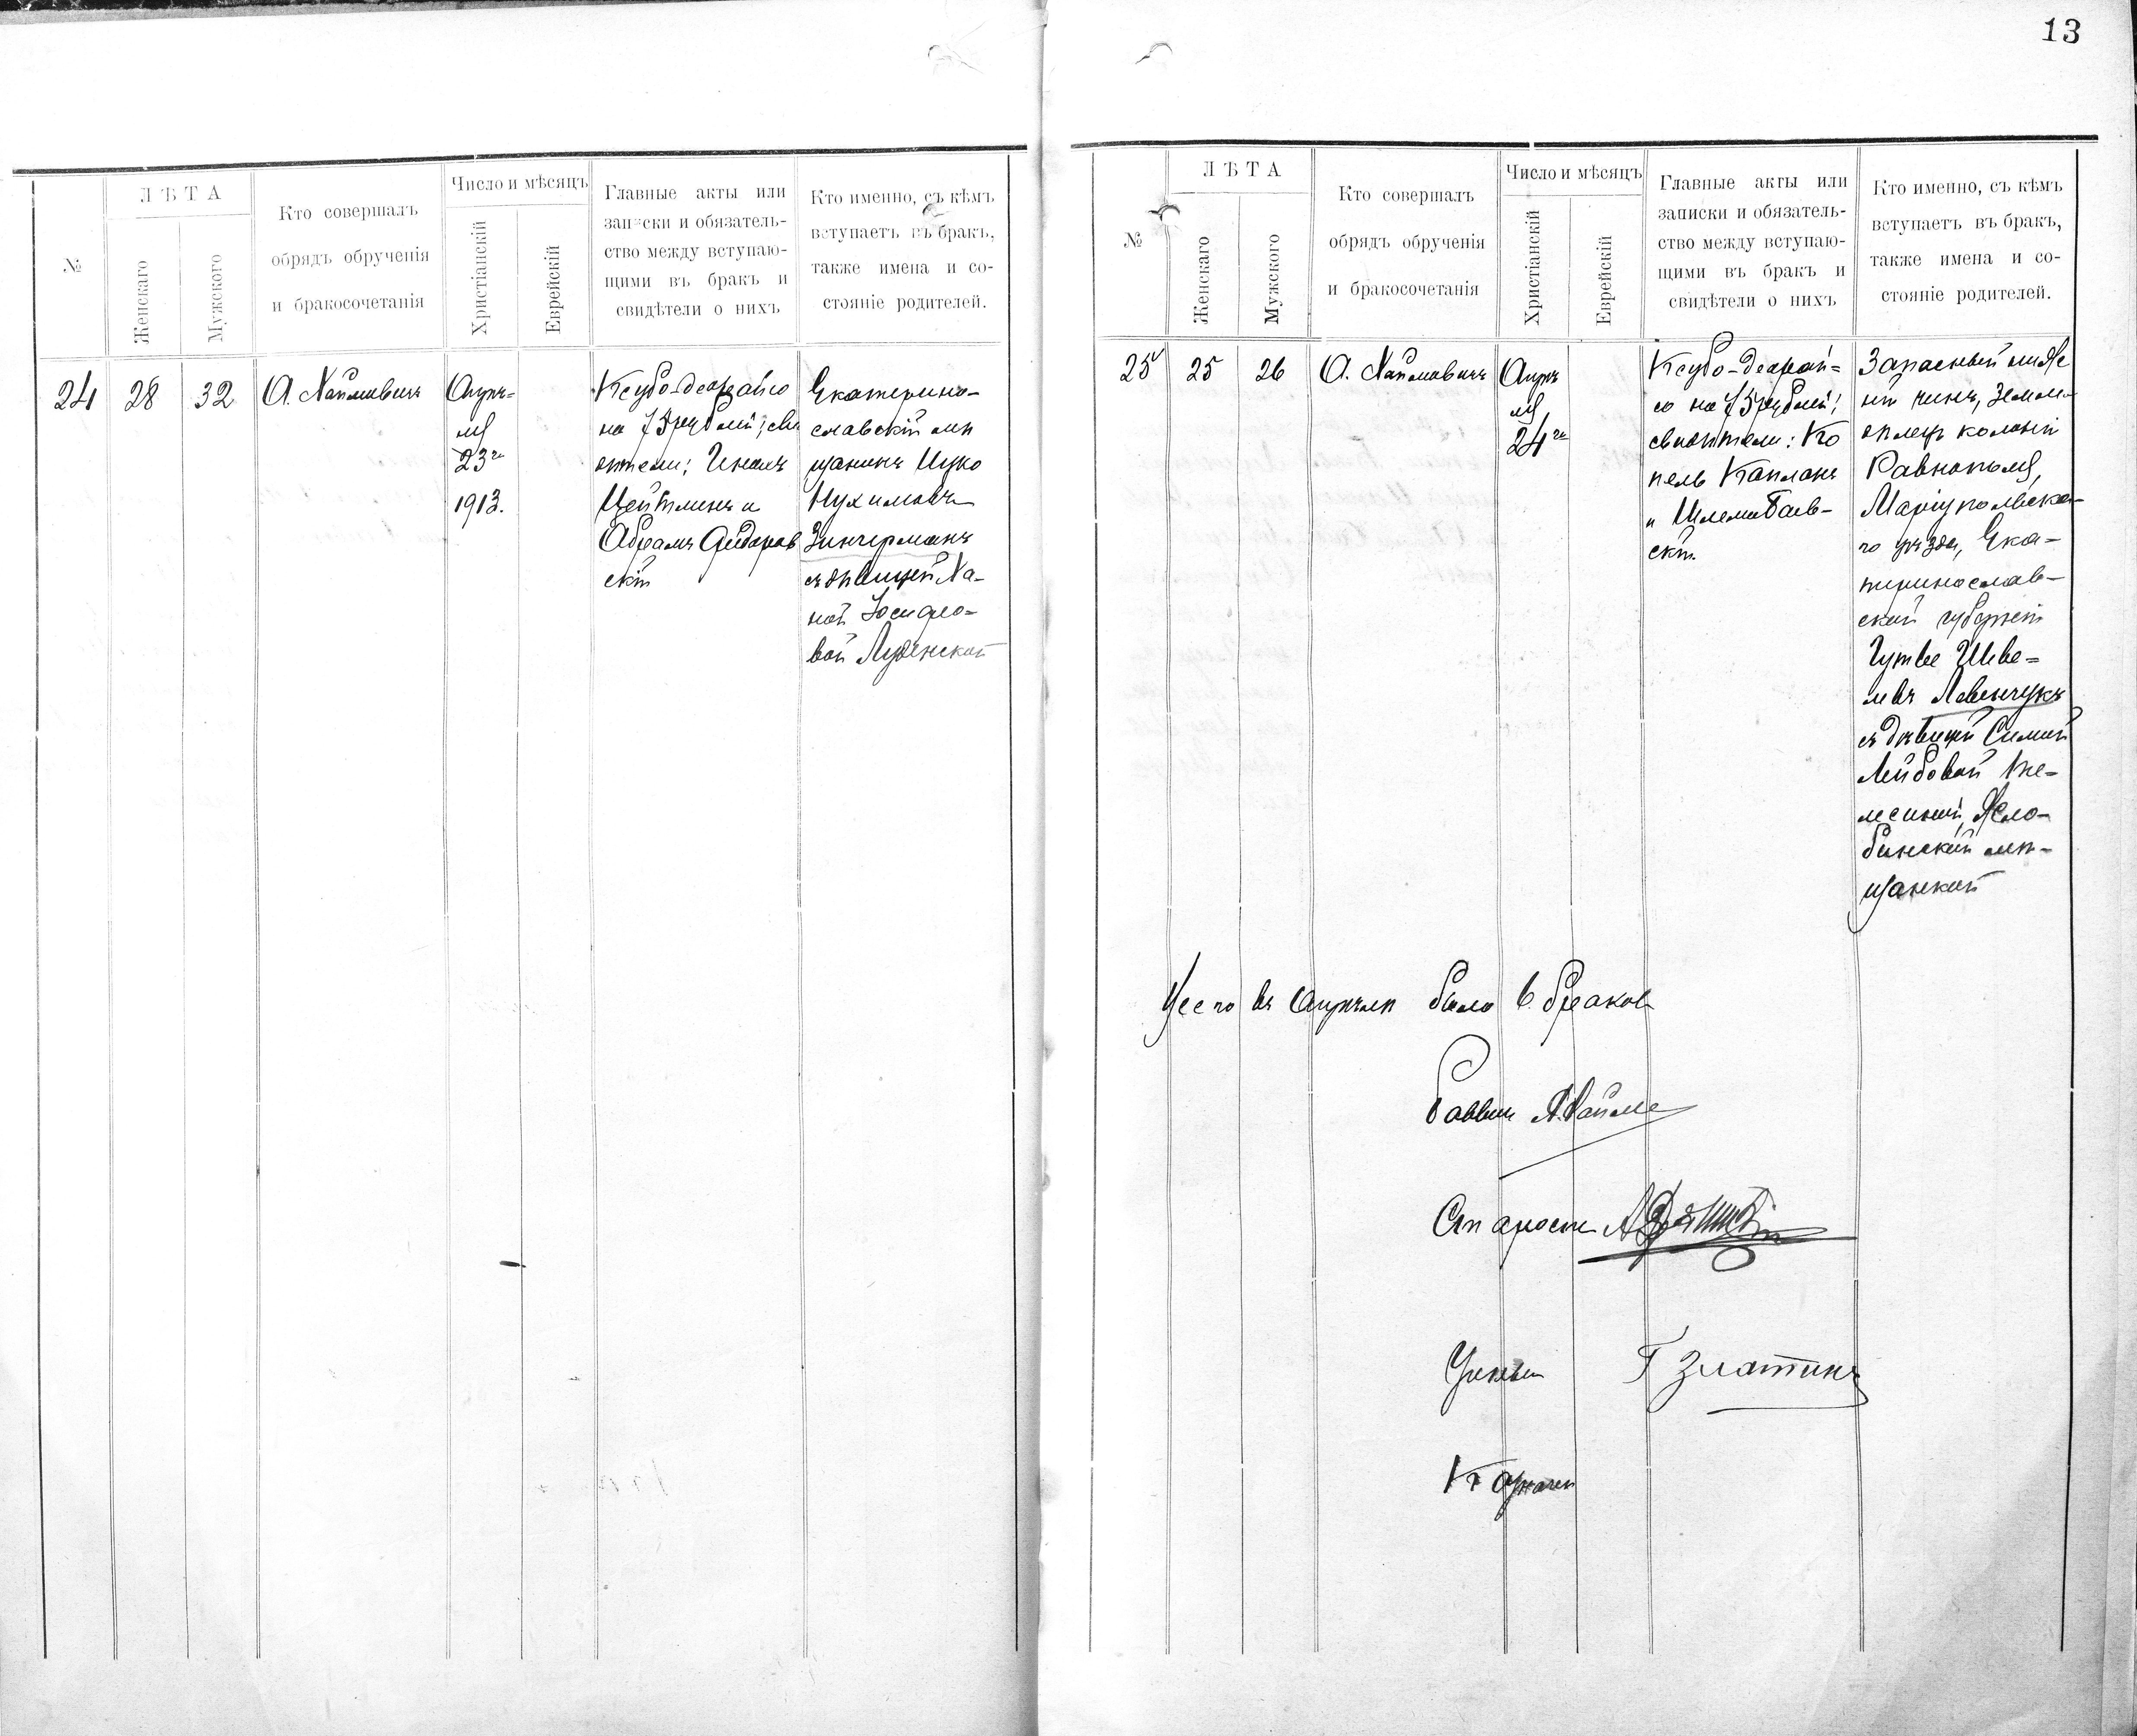 13
№
ЛѢТА
Женскаго
Мужского
Кто совершалъ
обрядъ обрученія
и бракосочетанія
Число и мѣсяцъ
Христіанскій
Еврейскій
Главные акты или
записки и обязатель-
ство между вступаю-
щими въ бракъ и
свидѣтели о нихъ
Кто именно, съ кѣмъ
вступаетъ въ бракъ,
также имена и со-
стояніе родителей.
24
28
32
А. Хаймовичъ
Апрѣ-
ля
23го
1913.
Ксубо-деорайсо
на 75 рублей; сви
дѣтели:
Цейтлинъ и
Абрамъ
скій
Екатерино-
славскій мѣ
щанинъ Ицко
Нухимовъ
Зингерманъ
съ дѣвицей Ха-
ной Іосифо-
вой
№
ЛѢТА
Женскаго
Мужского
Кто совершалъ
обрядъ обрученія
и бракосочетанія
Число и мѣсяцъ
Христіанскій
Еврейскій
Главные акты или
записки и обязатель-
ство между вступаю-
щими въ бракъ и
свидѣтели о нихъ
Кто именно, съ кѣмъ
вступаетъ въ бракъ,
также имена и со-
стояніе родителей.
25
25
26
А. Хаймовичъ
Апрѣ
ля
24го
Ксубо-деорай-
со на 75 рублей;
свидѣтели: Ко
пель Капланъ
и Шлема
скій
Запасный ниж
ній чинъ, земле-
дѣлецъ колоніи
Равнополя,
Маріупольска-
го уѣзда, Ека-
теринослав-
ской губерніи
Леванчукъ
съ дѣвицей Симой
Лейбовой
Жло-
бинской мѣ-
щанкой
Всего въ Апрѣлѣ было 6 браковъ
Раввинъ А. Хайм
Староста
Ученый Г Златинъ
Казначей